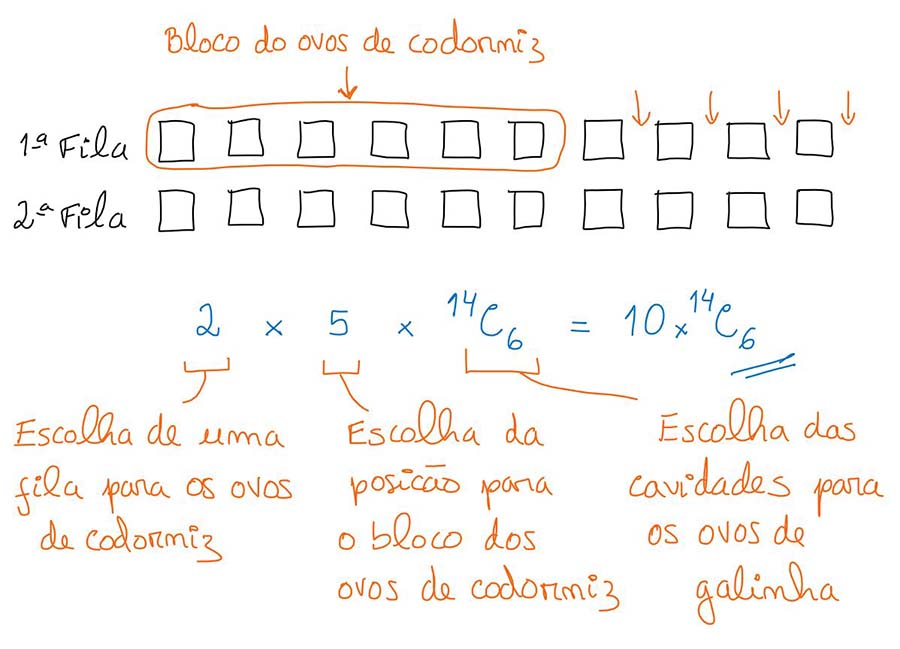 Bloco do ovos de codorniz
1ª Fila
2ª Fila
2 × 5 × ¹⁴C₆ = 10 × ¹⁴C₆
Escolha de uma
fila para os ovos
de codorniz
Escolha da
posicão para
o bloco dos
ovos de codorniz
Escolha das
cavidades para
os ovos de
galinha